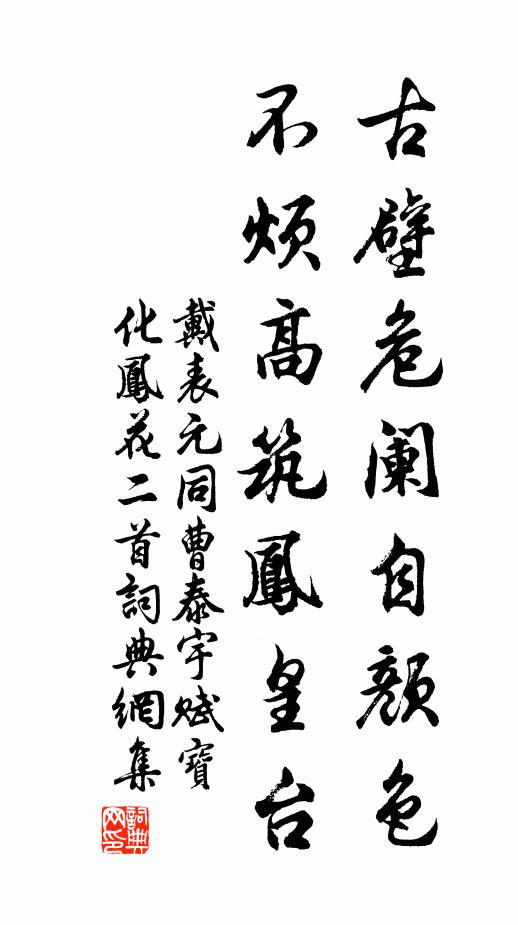 古壁危阑自颜色
不烦高筑鳳皇台
戴表元同曹泰宇赋寶
化鳳花二首詞典網集
詞典
网印